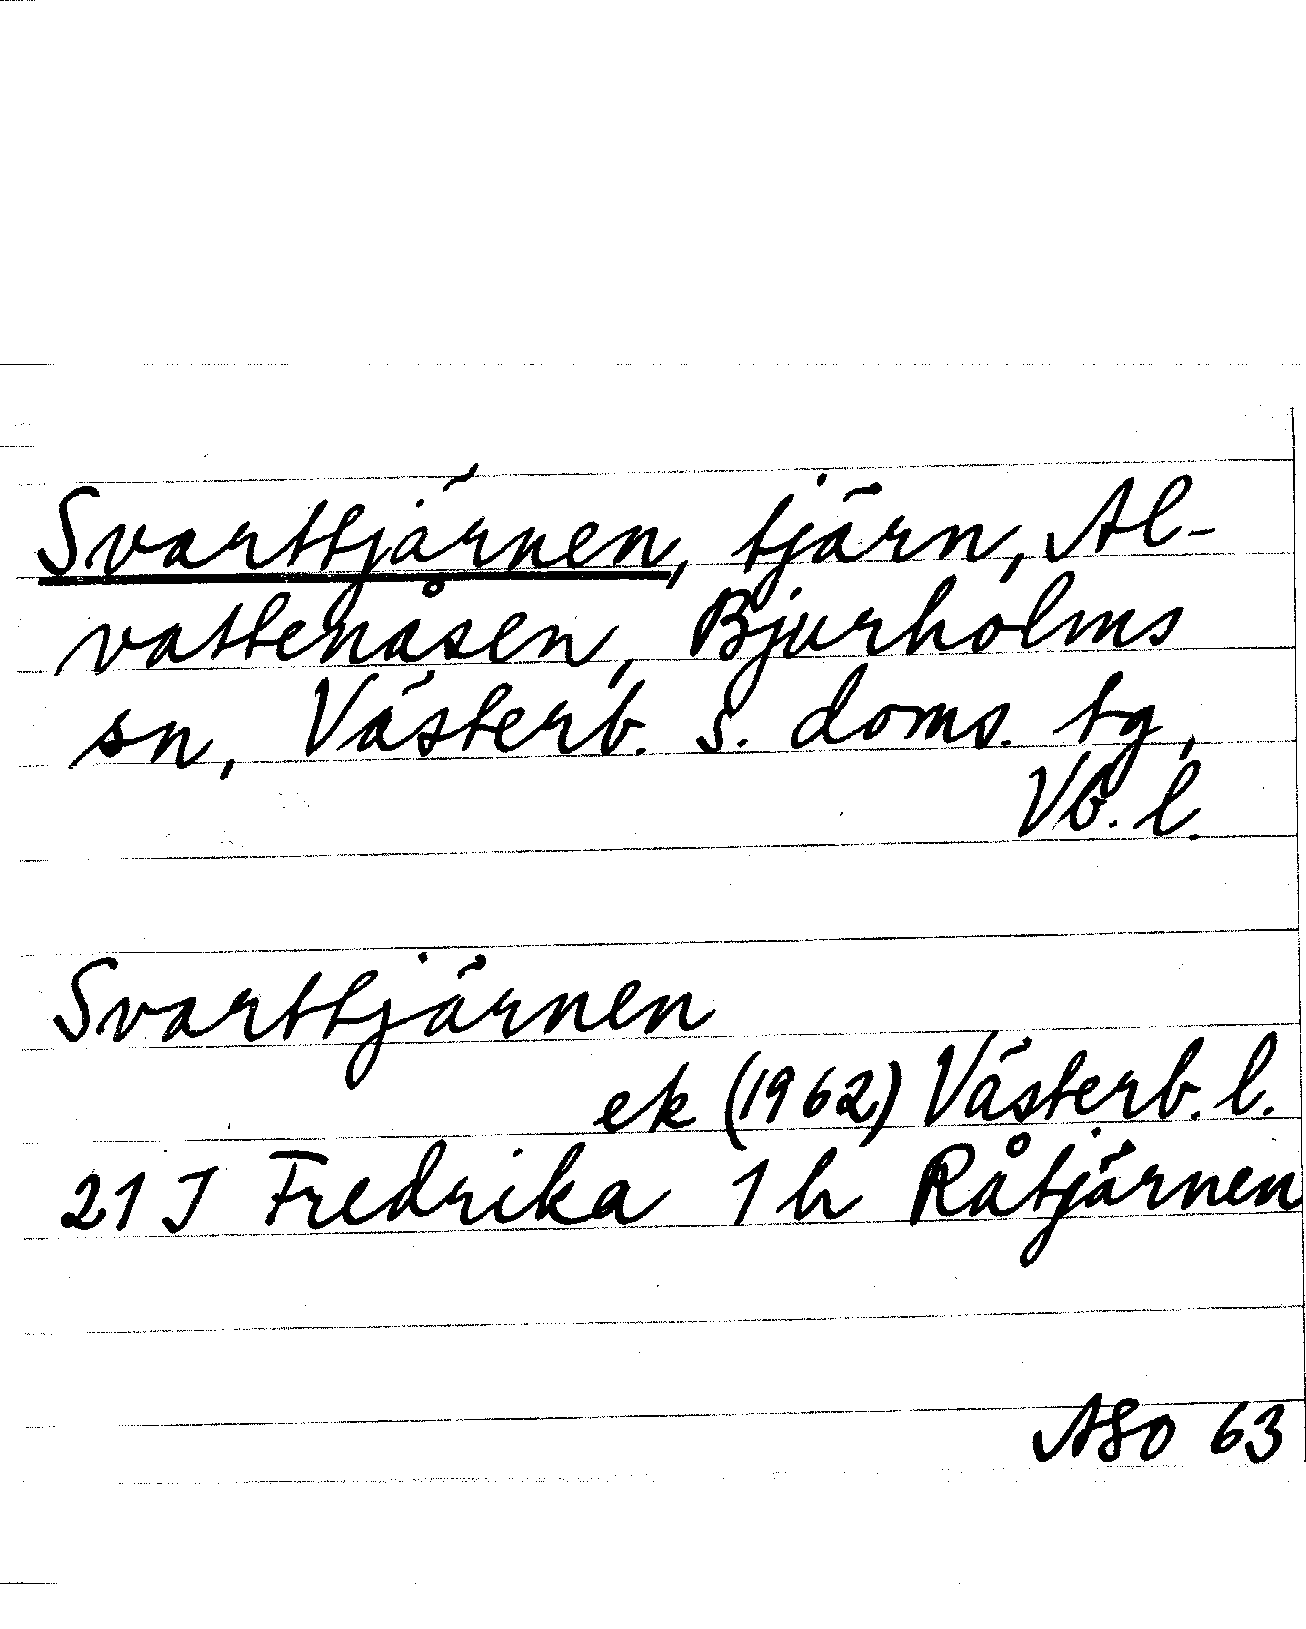 Svarttjärnen, tjärn, Al-
vattenåsen, Bjurholms
sn, Västerb. s. doms. tg,
Vb. l.
Svarttjärnen
ek (1962) Västerb. l.
21 J Fredrika 1 h Råtjärnen
ASO 63